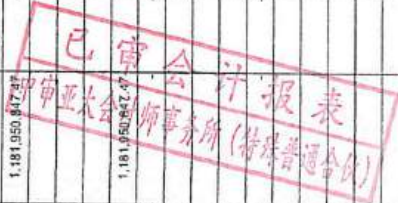 已审会计报表
中审亚太会计师事务所(特殊普通合伙)
1,181,950,847.47
1,181,950,847.47